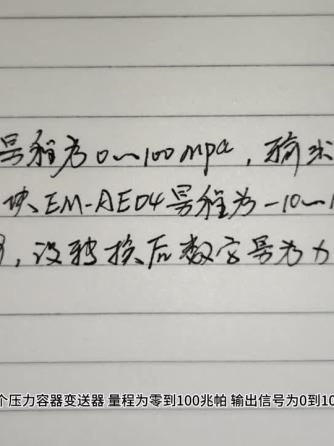 量程为0~100mpa,输出
块EM-AE04量程为-10~1
,设转换后数字量为X
个压力容器变送器 量程为零到100兆帕 输出信号为0到10